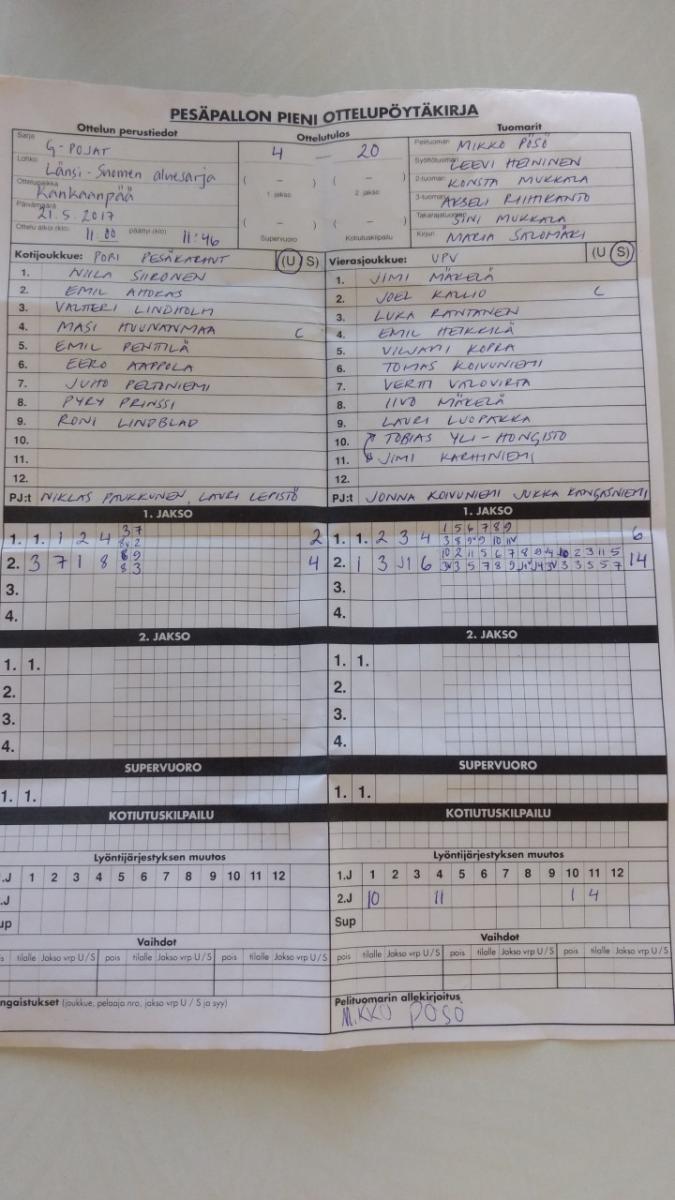 PESÄPALLON PIENI OTTELUPÖYTÄKIRJA
Ottelun perustiedot
Ottelutulos
Tuomarit
Sarja G-POJAT
Lohko Länsi-Suomen aluesarja
Ottelupaikka Kankaanpää
Päivämäärä 21.5.2017
Ottelu alkoi (klo) 11.00 päättyi (klo) 11:46
4 — 20
( – ) ( – )
1. jakso 2. jakso
( – ) ( – )
Supervuoro Kotiutuskilpailu
Pelituomari MIKKO PÖSÖ
Syöttötuomari LEEVI HEININEN
2-tuomari KONSTA MUKKALA
3-tuomari AKSELI RIIHIKANTO
Takarajatuomari SINI MUKKALA
Kirjuri MARIA SALOMÄKI
Kotijoukkue: PORI PESÄKARHUT (U S)
1. NIILA SIIRONEN
2. EMIL AHOKAS
3. VALTTERI LINDHOLM
4. MASI HUUNANMAA C
5. EMIL PENTTILÄ
6. EERO KAPPOLA
7. JUHO PELTONIEMI
8. PYRY PRINSSI
9. RONI LINDBLAD
10.
11.
12.
PJ:t NIKLAS PAUKKUNEN, LAURI LEPISTÖ
Vierasjoukkue: UPV (U S)
1. JIMI MÄKELÄ
2. JOEL KALLIO C
3. LUKA RANTANEN
4. EMIL HEIKKILÄ
5. VILJAMI KOPRA
6. TOMAS KOIVUNIEMI
7. VERTTI VALOVIRTA
8. IIVO MÄKELÄ
9. LAURI LUOPAKKA
10. TOBIAS YLI-HONGISTO
11. JIMI KARHINIEMI
12.
PJ:t JONNA KOIVUNIEMI JUKKA KANGASNIEMI
1. JAKSO
1. 1. 1 2 4 3 7 2
2. 3 7 1 8 4
3.
4.
2. JAKSO
1. 1.
2.
3.
4.
SUPERVUORO
1. 1.
KOTIUTUSKILPAILU
Lyöntijärjestyksen muutos
.J 1 2 3 4 5 6 7 8 9 10 11 12
.J
up
Vaihdot
is tilalle Jakso vrp U / S pois tilalle Jakso vrp U / S pois tilalle Jakso vrp U / S
ngaistukset (joukkue, pelaaja nro, jakso vrp U / S ja syy)
1. JAKSO
1 5 6 7 8 9
1. 1. 2 3 4 6
10 2 11 5 6 7 8 9 4 10 2 3 11 5
2. 1 3 6 14
3.
4.
2. JAKSO
1. 1.
2.
3.
4.
SUPERVUORO
1. 1.
KOTIUTUSKILPAILU
Lyöntijärjestyksen muutos
1.J 1 2 3 4 5 6 7 8 9 10 11 12
2.J 10 11 1 4
Sup
Vaihdot
pois tilalle Jakso vrp U / S pois tilalle Jakso vrp U / S pois tilalle Jakso vrp U / S
Pelituomarin allekirjoitus
MiKKO PÖSÖ